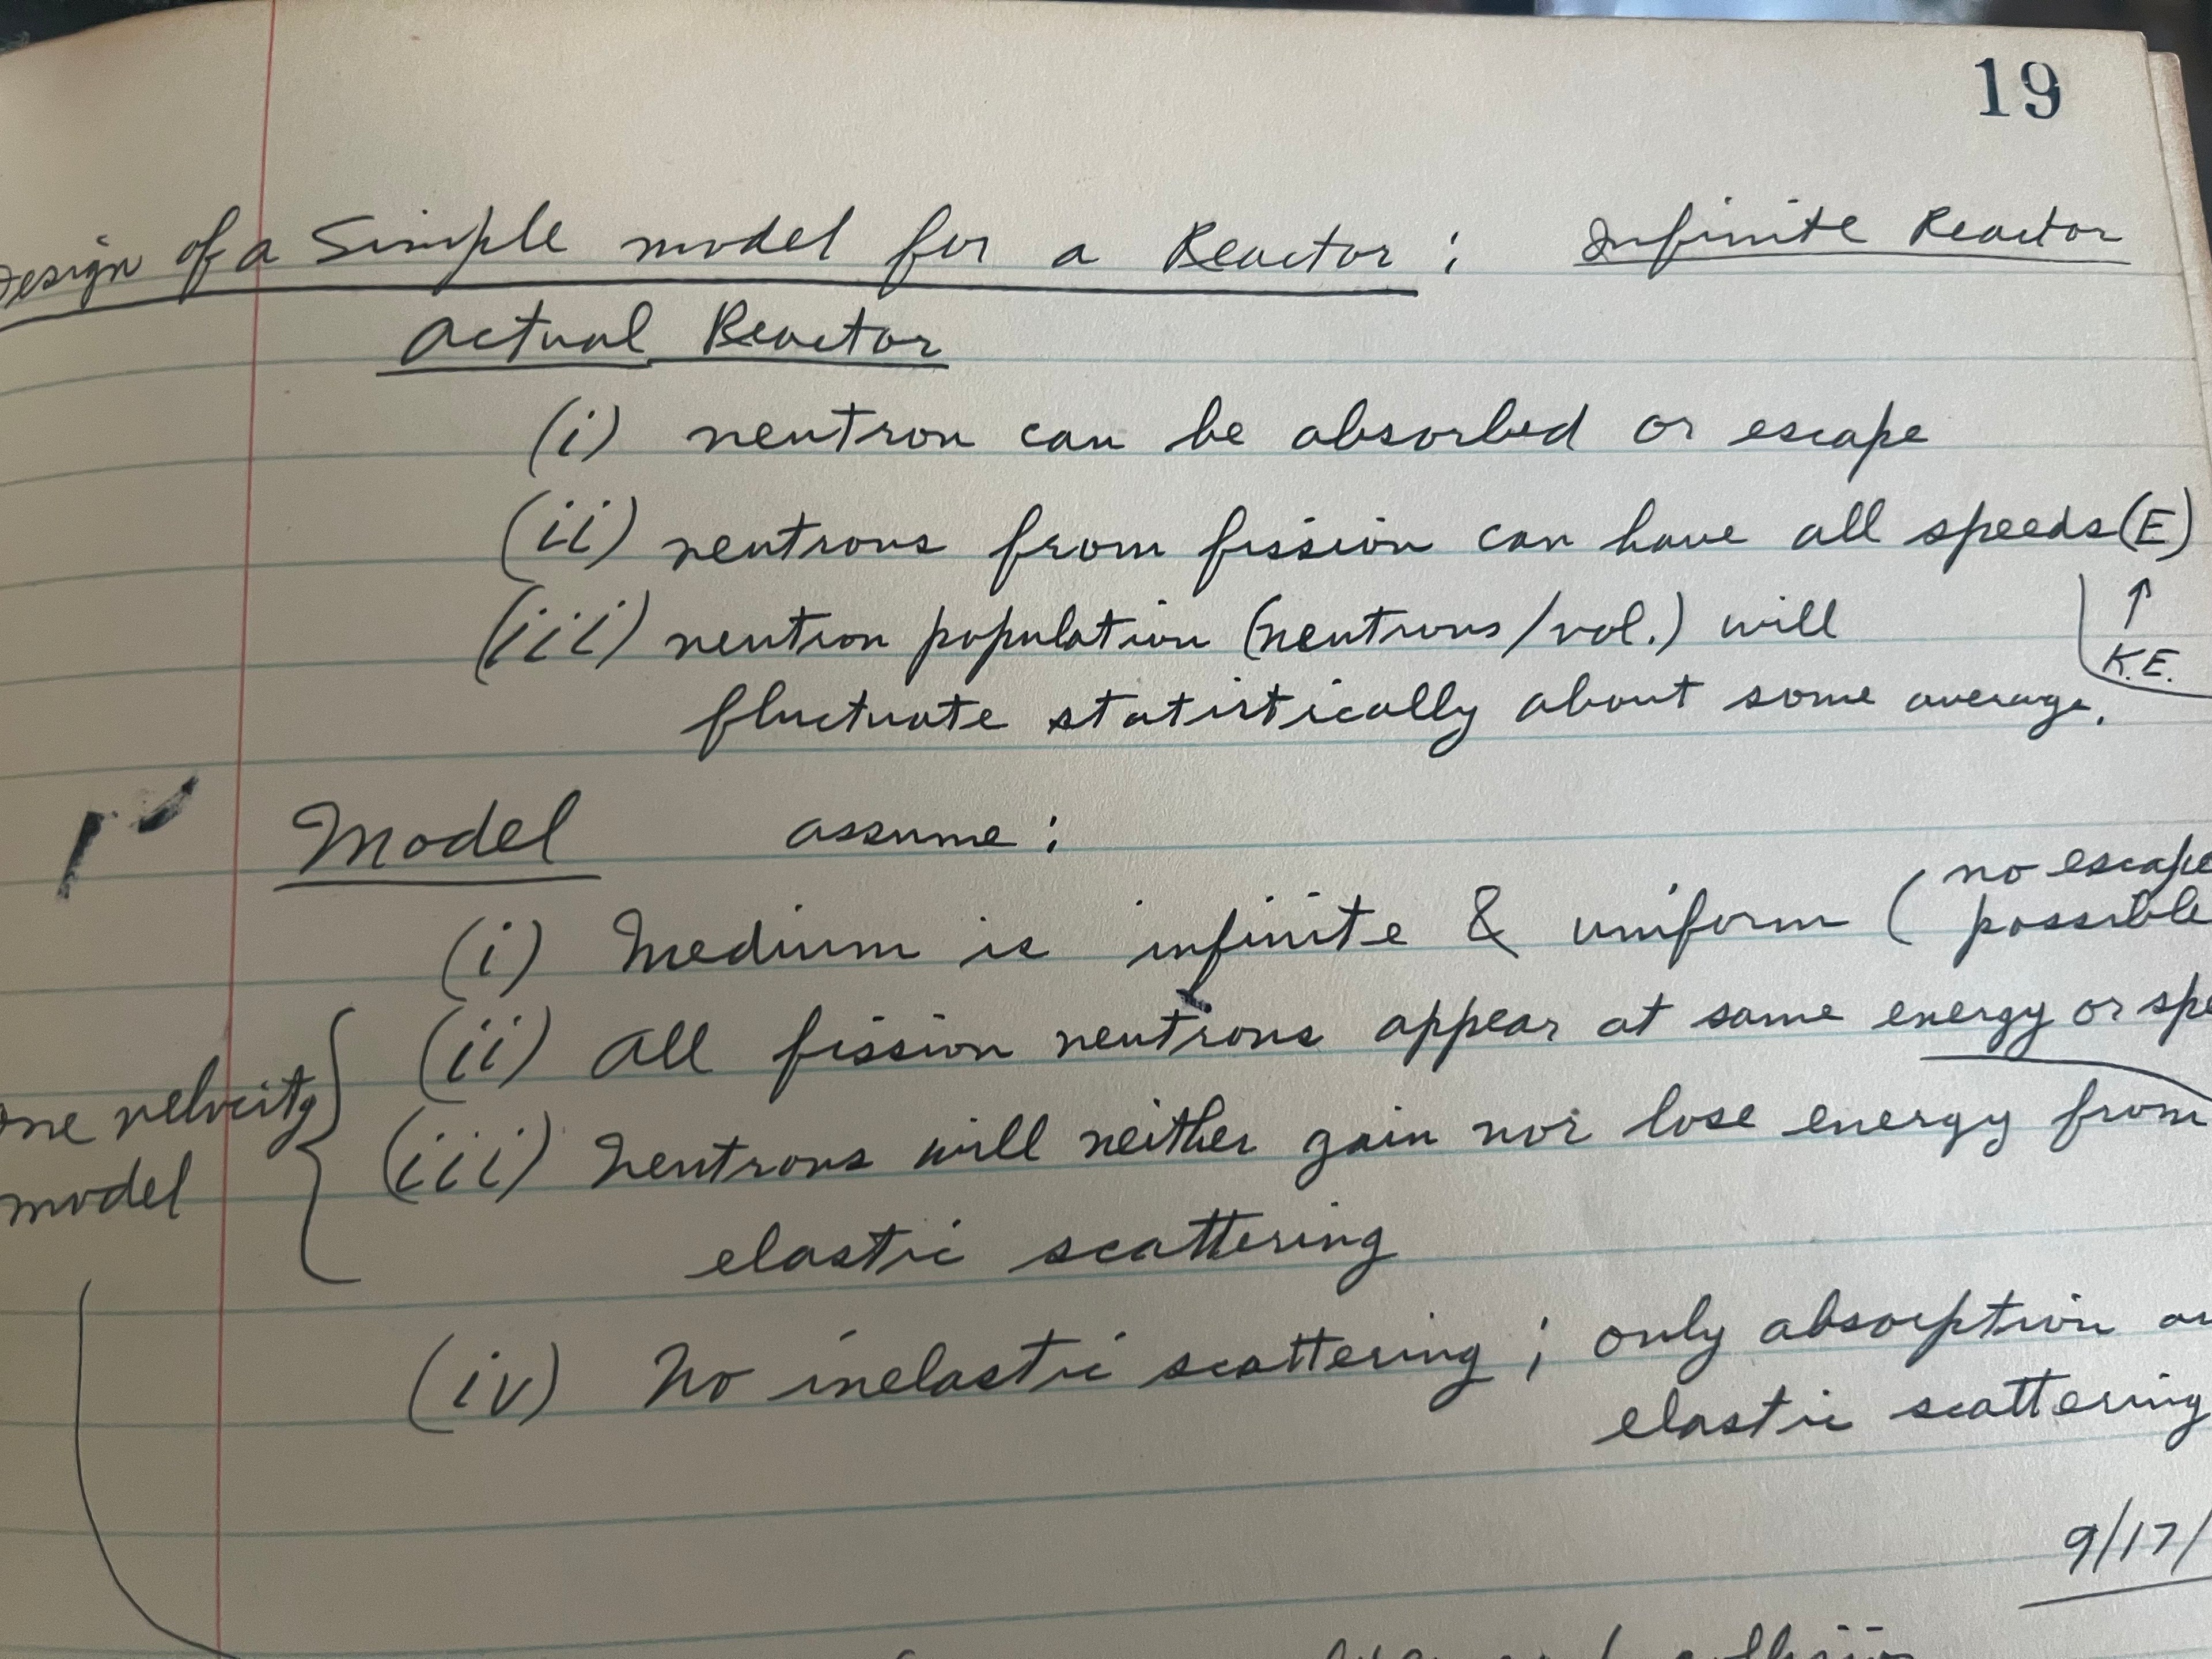 19
Design of a Simple model for a Reactor: Infinite Reactor
Actual Reactor
(i) neutron can be absorbed or escape
(ii) neutrons from fission can have all speeds (E)
↑
K.E.
(iii) neutron population (neutrons/vol.) will
fluctuate statistically about some average.
Model assume:
(i) Medium is infinite & uniform (no escape
possible
(ii) All fission neutrons appear at same energy or spe
one velocity
model
(iii) Neutrons will neither gain nor lose energy from
elastic scattering
(iv) No inelastic scattering; only absorption
elastic scattering
9/17/
collision